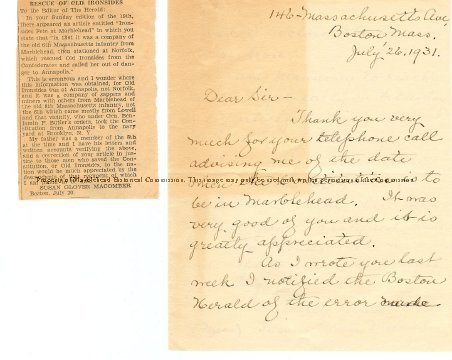 RESCUE OF OLD IRONSIDES
To the Editor of The Herald:
In your Sunday edition of the 19th,
there appeared an article entitled "Iron-
sides Fete at Marblehead" in which you
state that "in 1861 it was a company
of the 6th Massachusetts infantry from
Marblehead, then stationed at Norfolk,
which rescued Old Ironsides from the
Confederates and sailed her out of dan-
ger to Annapolis."
This is erroneous and I wonder where
this information was obtained, for Old
Ironsides was at Annapolis, not Norfolk,
and it was a company of sappers and
miners with others from Marblehead of
the old 8th Massachusetts infantry, not
the 6th which came mostly from Lowell
and that vicinity, who under Gen. Ben-
jamin F. Butler's orders, took the Con-
stitution from Annapolis to the navy
yard at Brooklyn, N. Y.
My father was a member of the 8th
at the time and I have his letters and
written accounts verifying the above,
and a correction of your article in jus-
tice to those men who saved the Consti-
tution, or Old Ironsides, in the
would be much appreciated by the
descendants of the company of which
SUSAN GLOVER MACOMBER
Boston, July 20.
146 Massachusetts Ave
Boston Mass.
July 26, 1931.
Dear Sir—
Thank you very
much for your telephone call
advising me of the date
when is to
be in Marblehead. It was
very good of you and it is
greatly appreciated.
As I wrote you last
week I notified the Boston
Herald of the error made
Property of Marblehead Historical Commission. This image may not be